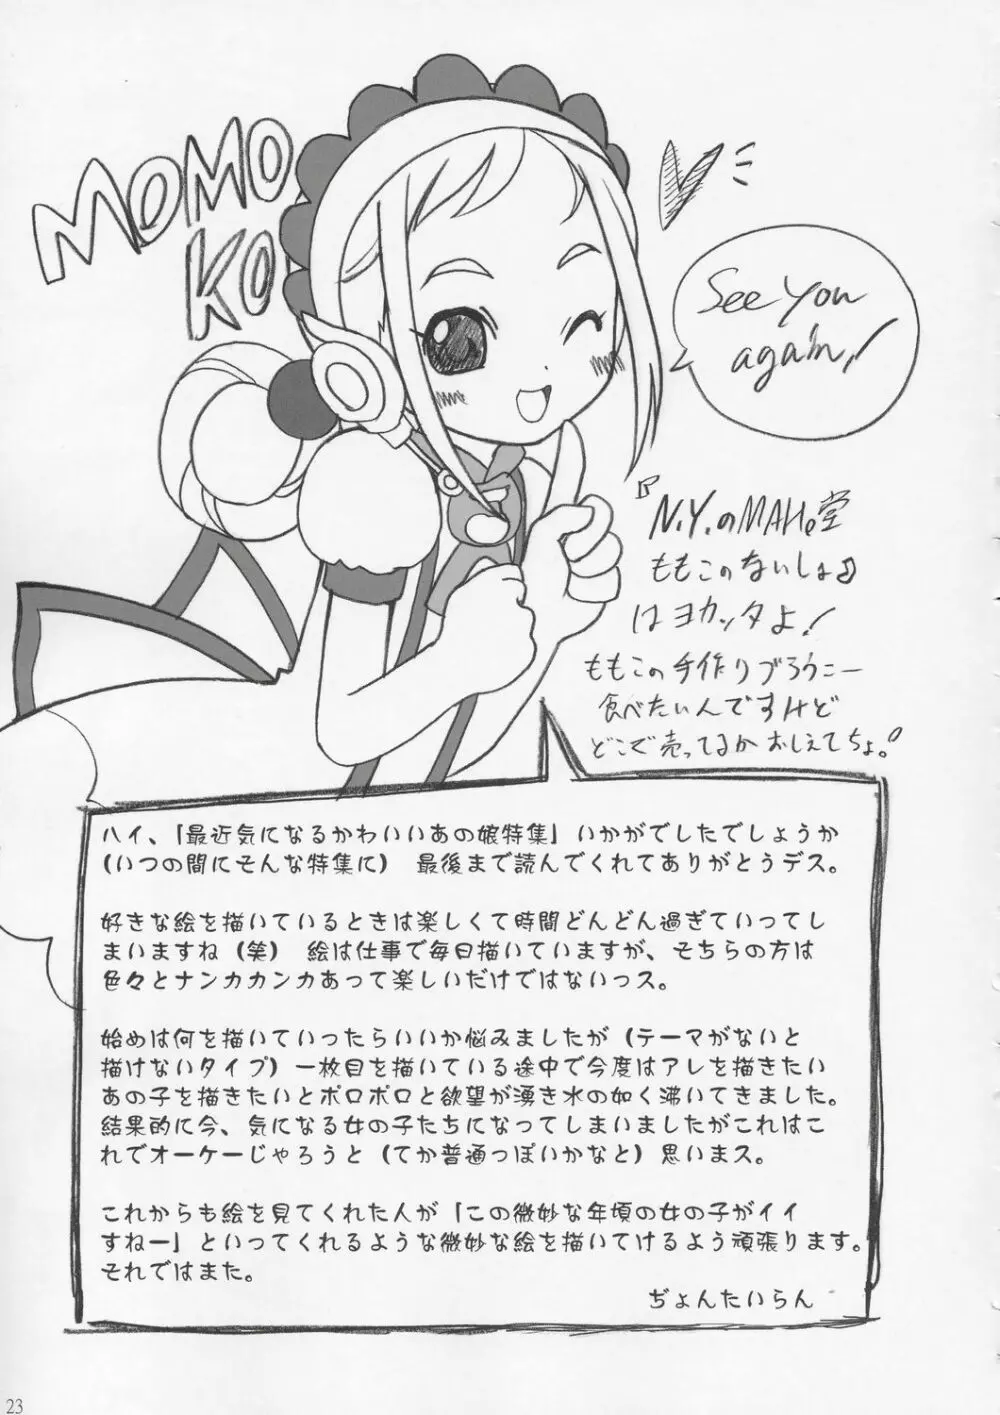 MOMO
KO
See you
again!
『N.Y.のMAHO堂
ももこのないしょ♪』
はヨカッタよ!
ももこの手作りブろうこー
食べたいんですけど
どこで売ってるかおしえてちょ。
ハイ、「最近気になるかわいいあの娘特集」いかがでしたでしょうか
(いつの間にそんな特集に) 最後まで読んでくれてありがとうデス。
好きな絵を描いているときは楽しくて時間どんどん過ぎていってし
まいますね(笑) 絵は仕事で毎日描いていますが、そちらの方は
色々とナンカカンカあって楽しいだけではないっス。
始めは何を描いていったらいいか悩みましたが(テーマがないと
描けないタイプ)一枚目を描いている途中で今度はアレを描きたい
あの子を描きたいとポロポロと欲望が湧き水の如く沸いてきました。
結果的に今、気になる女の子たちになってしまいましたがこれはこ
れでオーケーじゃろうと(てか普通っぽいかなと)思いまス。
これからも絵を見てくれた人が「この微妙な年頃の女の子がイイ
すねー」といってくれるような微妙な絵を描いてけるよう頑張ります。
それではまた。
ぢょんたいらん
23